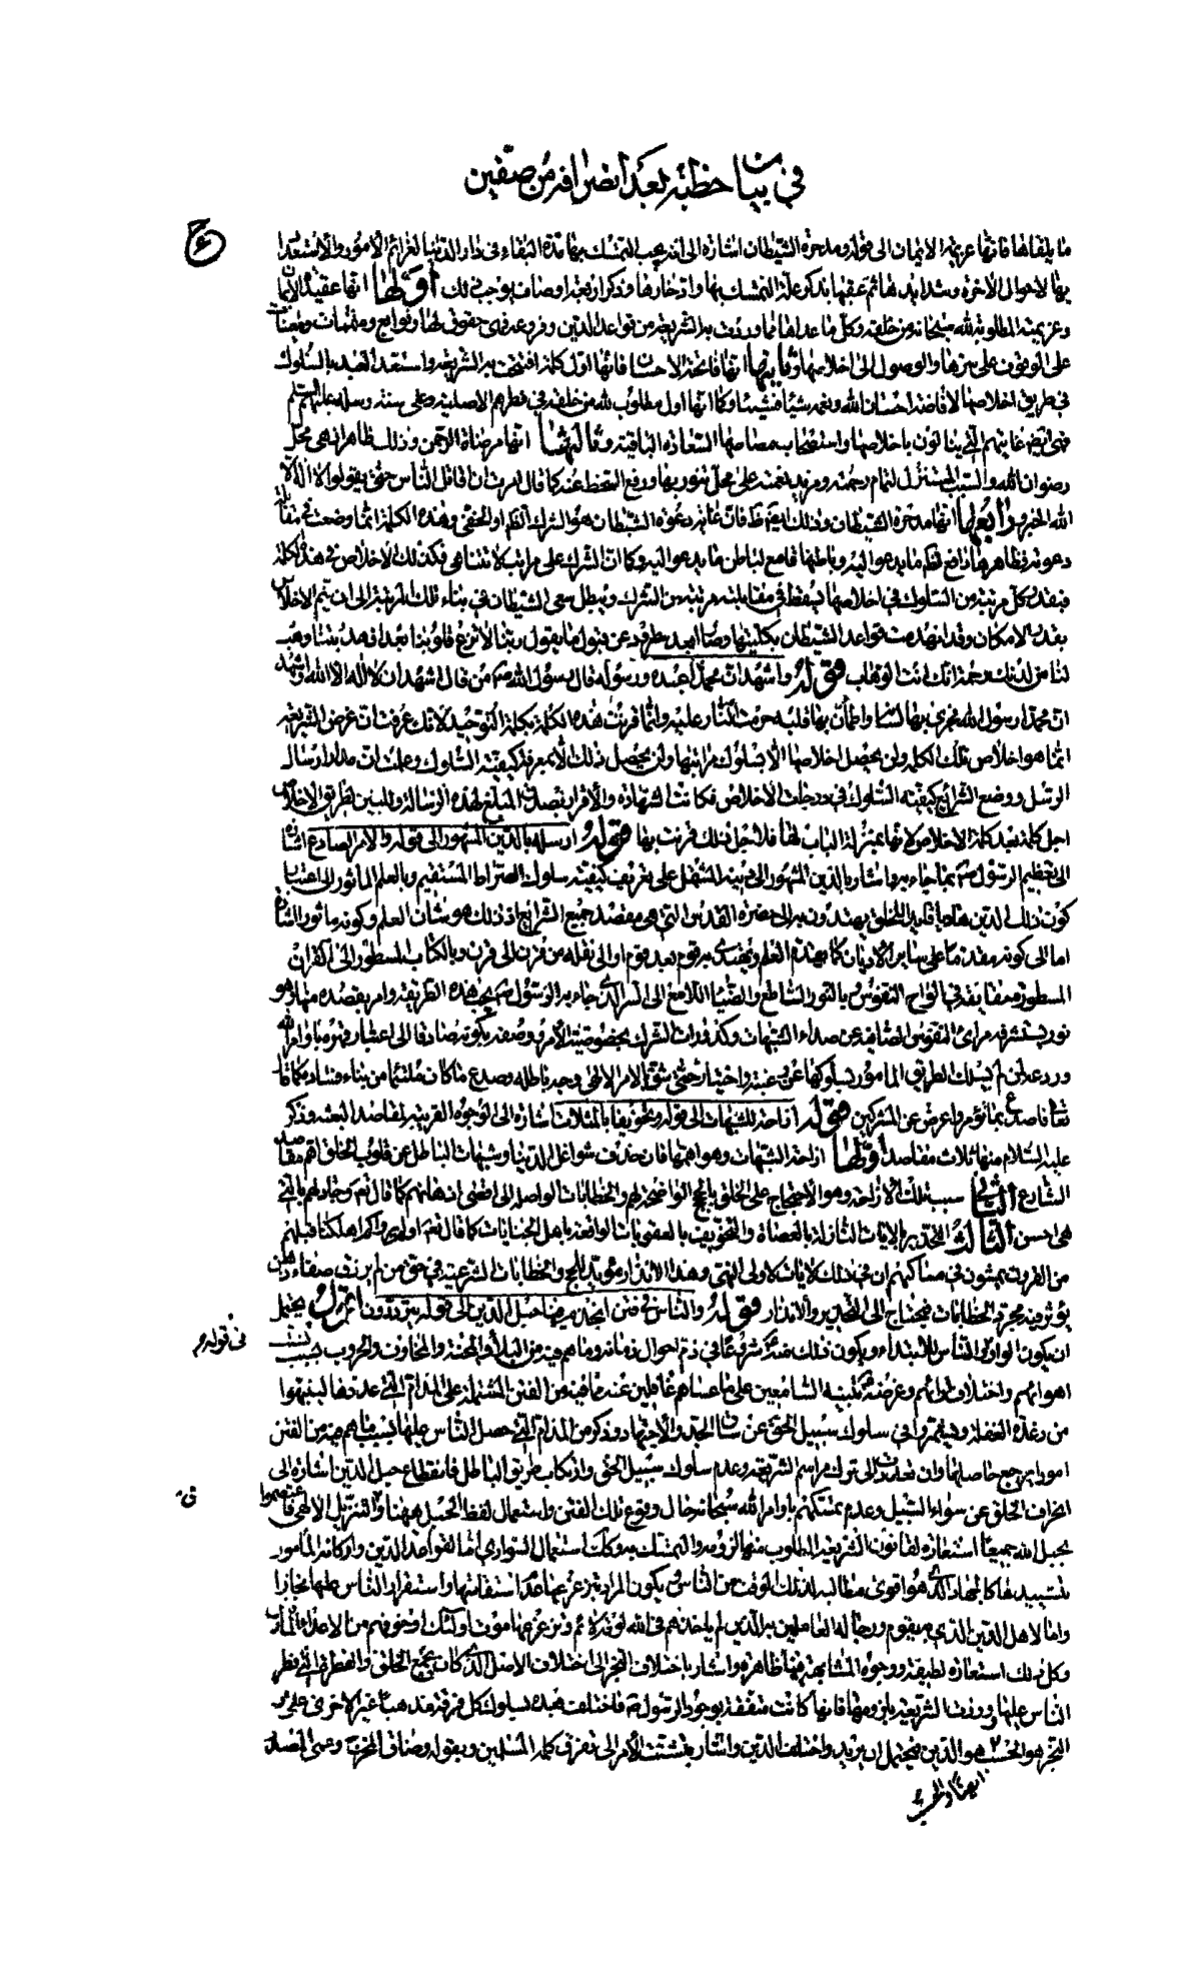 في بيان خطبته بعد انصرافه من صفين
ما يلقاها فانها عزيمة الايمان الى قوله ومدحرة الشيطان اشارة الى انه يجب التمسك بها مدة البقاء في دار الدنيا لعزائم الامور والاستعداد
بها لاهوال الاخرة وشدايدها ثم عقبها بذكر علة التمسك بها وادخارها وذكر اربعة اوصاف يوجب ذلك اولها انها عقيدة الايمان
وعزيمته المطلوبة لله سبحانه من خلقه وكل ما عداها مما وردت به الشريعة من قواعد الدين وفروعه فهي حقوق لها وتوابع ومتممات ومعينات
على الوقوف على سرها والوصول الى اخلاصها وثانيها انها فاتحة الاحسان فانها اول كلمة افتتحت بها الشريعة واستعد العبد بالسلوك
في طريق اخلاصها لافاضة احسان الله ونعمه شيئا فشيئا وكما انها اول مطلوب لله من خلقه في فطرهم الاصلية وعلى السنة رسله عليهم السلم
فهي ايضا غايتهم التي ينالون باخلاصها واستصحاب مصاصها السعادة الباقية وثالثها انها مرضاة الرحمن وذلك ظاهر اذ هي محل
رضوان الله والسبب المستنزل لتمام رحمته ومزيد نعمته على محل تنور بها ورفع السخط عنه كما قال امرت ان اقاتل الناس حتى يقولوا لا اله الا
الله الخبر ورابعها انها مدحرة الشيطان وذلك ايضا ظ فان غاية دعوة الشيطان هو الشرك الظاهر او الخفي وهذه الكلمة انما وضعت في مقابلة
دعوته فظاهرها دافع لظاهر ما يدعو اليه وباطنها قامع لباطن ما يدعو اليه وكما ان الشرك على مراتب لا تتناهى فكذلك الاخلاص في هذه الكلمة
فبقدر كل مرتبة من السلوك في اخلاصها يسقط في مقابلته مرتبة من الشرك ويبطل سعي الشيطان في بناء تلك المرتبة الى ان يتم الاخلاص
بقدر الامكان وقد انهدمت قواعد الشيطان بكليتها وصار ابعد مطرود عن قبول ما يقول ربنا لا تزغ قلوبنا بعد اذ هديتنا وهب
لنا من لدنك رحمة انك انت الوهاب قوله واشهد ان محمدا عبده ورسوله قال رسول الله ص من قال اشهد ان لا اله الا الله واشهد
ان محمدا رسول الله فجرى بها لسانه واطمأن بها قلبه حرمت النار عليه وانما قرنت هذه الكلمة بكلمة التوحيد لانك عرفت ان غرض الشريعة
انما هو اخلاص تلك الكلمة ولن يحصل اخلاصها الا بسلوك مراتبها ولن يحصل ذلك الا بمعرفة كيفية السلوك وعلمت ان مدار ارسال
الرسل ووضع الشرايع كيفية السلوك في درجات الاخلاص فكانت الشهادة والاقرار بصدق المبلغ لهذه الرسالة والمبين لطريق الاخلاص
اجل كلمة بعد كلمة الاخلاص لانها بمنزلة الباب لها فلاجل ذلك قرنت بها قوله ارسله بالدين المشهور الى قوله والامر الصادع اشارة
الى تعظيم الرسول ص بما جاء به واشار بالدين المشهور الى دينه المشتمل على تعريف كيفية سلوك الصراط المستقيم وبالعلم المأثور الى اعتبار
كون ذلك الدين هاديا قايدا للخلق يهتدون به الى حضرة القدس التي هي مقصد جميع الشرايع اذ ذلك هو شان العلم وكونه ماثورا اشارة
اما الى كونه مقدما على ساير الاديان كما يهتدى بالعلم ويقتدي به قوم بعد قوم او الى نقله من قرن الى قرن وبالكتاب المسطور الى القرآن
المسطورة حقايقه في الواح النفوس وبالنور الساطع والضياء اللامع الى السر الذي جاء به الرسول ص بحسب هذه الطريقة وامر بقصده منها وهو
نور يستشرفه مرائي النفوس الصافية عن صداء الشبهات وكدورات الشرك بخصوصيته الامر ووصفه بكونه صادعا الى اعتبار قهره باوامر الله
وردعه لمن لم يسلك الطريق المامور بسلوكها عن رغبة واختيار حتى شق الامر الالهي وجه باطله وصدع ما كان ملتئما من بناء فساده كما قال
تعالى فاصدع بما تؤمر واعرض عن المشركين قوله ازاحة للشبهات الى قوله وتخويفا بالمثلات اشارة الى الوجوه القريبة لمقاصد البعثة وذكر
عليه السلام منها ثلاث مقاصد اولها ازاحة الشبهات وهو اهمها فان حذف شواغل الدنيا وشبهات الباطل عن قلوب الخلق اهم مقاصد
الشارع الثاني سبب تلك الازاحة وهو الاحتجاج على الخلق بالحجج الواضحة لهم والخطابات الواصلة الى اقصى اذهانهم كما قال تعالى وجادلهم بالتي
هي احسن الثالث التحذير بالايات النازلة بالعصاة والتخويف بالعقوبات الواقعة باهل الجنايات كما قال تعالى اولم يهد لهم كم اهلكنا قبلهم
من القرون يمشون في مساكنهم ان في ذلك لايات لاولي النهى وهذا الانذار مؤيد للحجج والخطابات الشرعية في حق من لم يزنف صفاء ذهن
يؤثر فيه مجرد الخطابات فيحتاج الى التحذير والانذار قوله والناس في فتن انجذم فيها حبل الدين الى قوله اقول يحتمل
ان يكون الواو في والناس للابتداء ويكون ذلك منه ع شروعا في ذم احوال زمانه وما هم فيه من البلاء والمحنة والمخاوف والحروب بسبب تشتت
في قوله م
اهوائهم واختلاف ارائهم وغرضه ع تنبيه السامعين على ما عساهم غافلين عنه مما فيه من الفتن المشتملة على المذام التي عددها لينتبهوا
من رقدة الغفلة ويشمروا في سلوك سبيل الحق عن ساق الجد والاجتهاد وذكر من المذام التي حصل الناس عليها بسبب ما هم فيه من الفتن
امورا يرجع حاصلها وان تعددت الى ترك مراسم الشريعة وعدم سلوك سبيل الحق وارتكاب طريق الباطل فانقطاع حبل الدين اشارة الى
انحراف الخلق عن سواء السبيل وعدم تمسكهم باوامر الله سبحانه حال وقوع تلك الفتن واستعمال لفظ الحبل ههنا وفي التنزيل الالهي واعتصموا
بحبل الله جميعا استعارة لقانون الشريعة المطلوب منها لزومه والتمسك به وكذلك استعمال السواري اما لقواعد الدين واركانه المأمور
بتشييدها كالجهاد الذي هو اقوى مطالبه لذلك الوقت من الناس ويكون المراد بتزعزعها عدم استقامتها واستقرار الناس عليها مجازا
واما لاهل الدين الذي به يقوم ورجاله العاملين به الذين لم ياخذهم في الله لومة لائم وتزعزعها موت اولئك او خوفهم من الاعداء المارقين
وكل ذلك استعارة لطيفة ووجوه المشابهة فيها ظاهرة واشار باختلاف النجر الى اختلاف الاصل الذي كان يجمع الخلق والفطرة التي فطر
الناس عليها ووردت الشريعة بلزومها فانها كانت متفقة بوجود الرسول ص فاختلفت بعده بسلوك كل فرقة مذهبا غير الاخرى على ان
النجر هو الحسب وهو الدين فيحتمل ان يريد واختلف الدين واشار بتشتت الامر الى تفرق كلمة المسلمين وبقوله وضاق المخرج وعمي المصدر